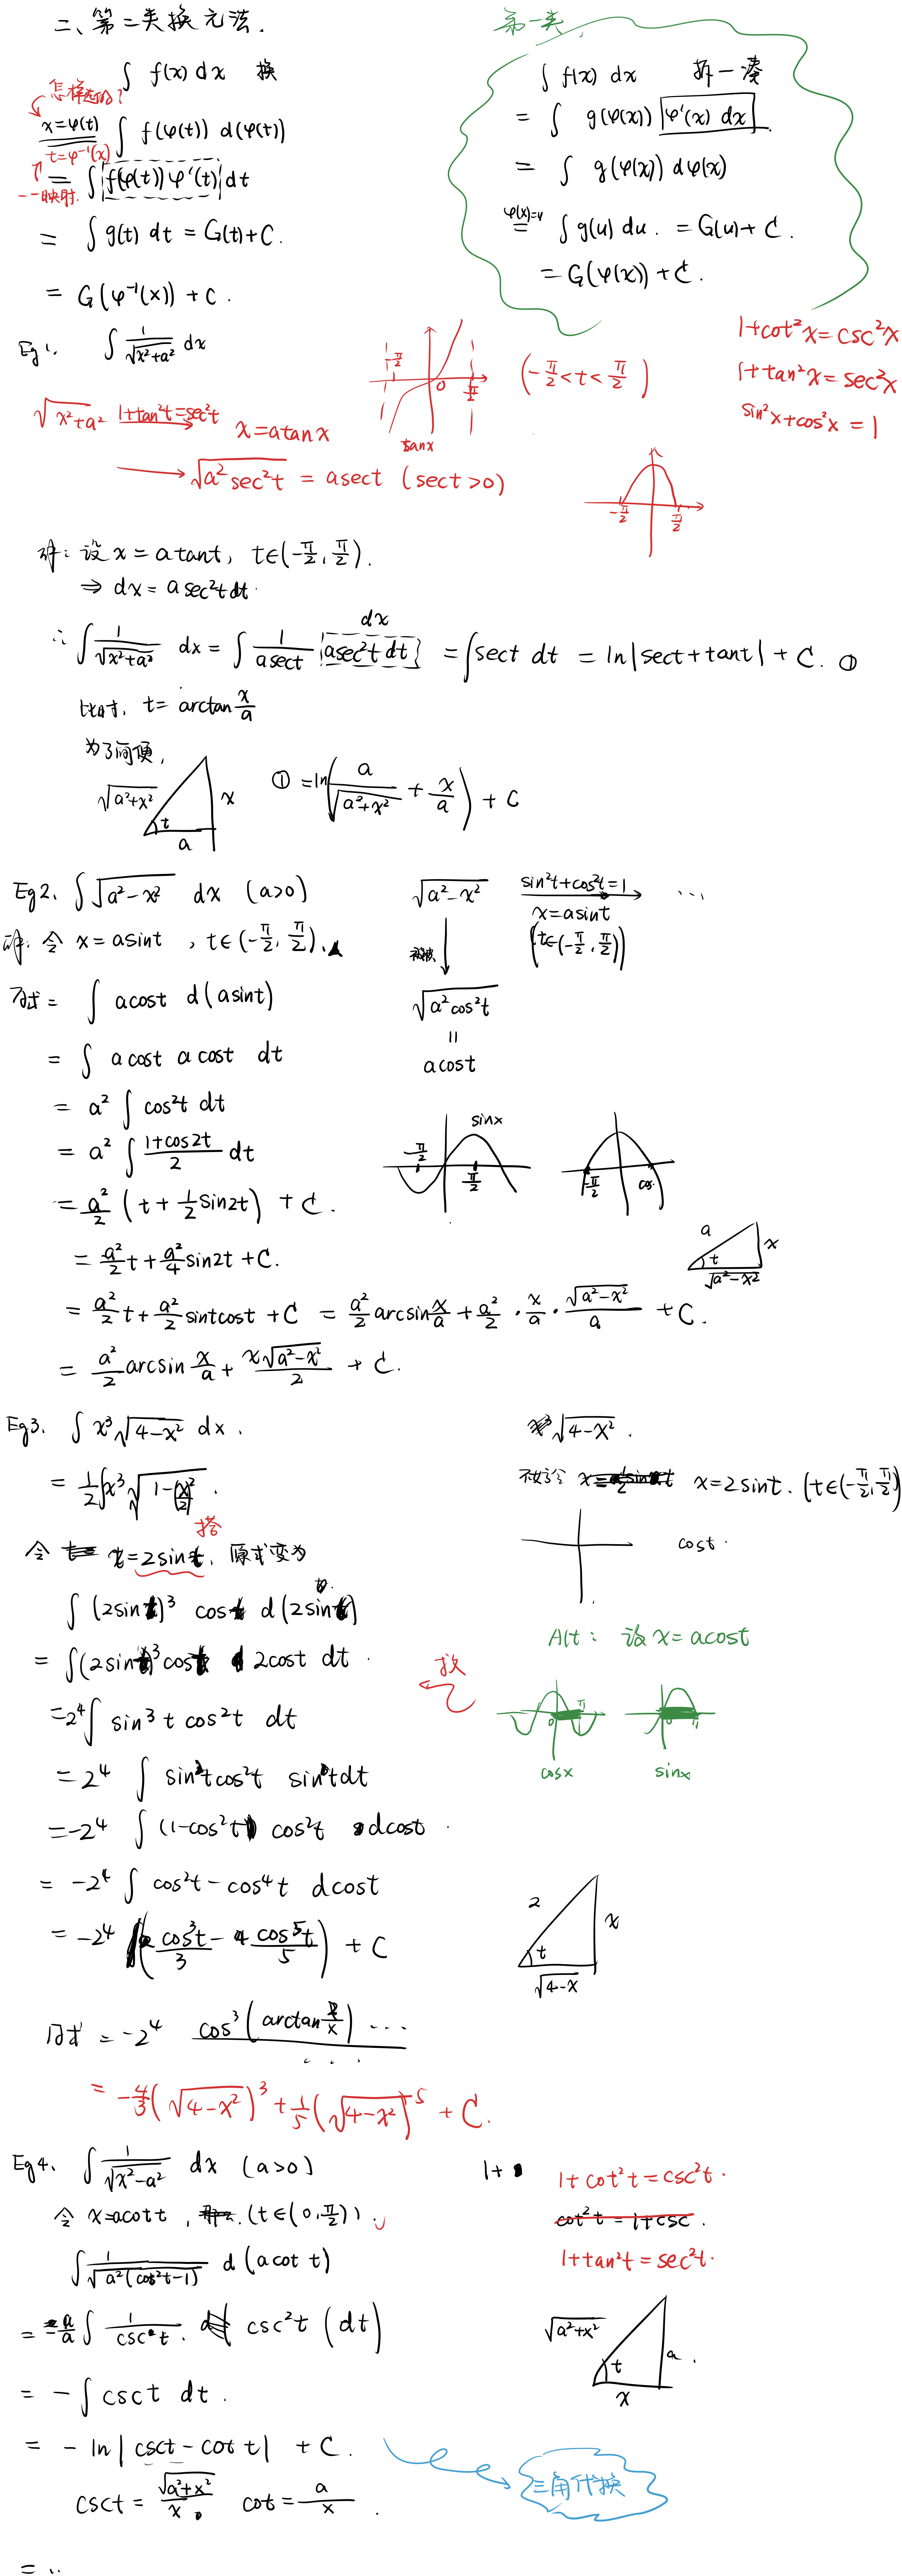 二、第二类换元法.
∫ f(x) dx 换
怎样选的?
x=φ(t) ∫ f(φ(t)) d(φ(t))
t=φ⁻¹(x)
一一映射.
= ∫ f(φ(t)) φ'(t) dt
= ∫ g(t) dt = G(t)+C.
= G(φ⁻¹(x)) + C.
第一类.
∫ f(x) dx 拆一凑
= ∫ g(φ(x)) φ'(x) dx.
= ∫ g(φ(x)) dφ(x)
φ(x)=u
= ∫ g(u) du. = G(u) + C.
= G(φ(x)) + C.
Eg 1. ∫ 1/√(x²+a²) dx
-π/2 0 π/2
tanx
(-π/2 < t < π/2)
1+cot²x = csc²x
1+tan²x = sec²x
sin²x+cos²x = 1
√(x²+a²) 1+tan²t=sec²t → x=atanx
→ √(a²sec²t) = asect (sect>0)
-π/2 π/2
解: 设 x = atant, t∈(-π/2, π/2).
⇒ dx = asec²tdt.
dx
∴ ∫ 1/√(x²+a²) dx = ∫ 1/asect asec²t dt = ∫ sect dt = ln|sect+tant| + C. ①
此时, t = arctan x/a
为了简便,
√(a²+x²) x t a
① = ln(a/√(a²+x²) + x/a) + C
Eg2. ∫ √(a²-x²) dx (a>0)
√(a²-x²) sin²t+cos²t=1 → ...
x=asint
(t∈(-π/2, π/2))
解: 令 x=asint, t∈(-π/2, π/2).
原式 = ∫ acost d(asint)
√(a²cos²t)
=
acost
= ∫ acost acost dt
= a² ∫ cos²t dt
= a² ∫ (1+cos2t)/2 dt
sinx
-π/2 π/2
-π/2 cos
= a²/2 (t + 1/2 sin2t) + C.
= a²/2 t + a²/4 sin2t + C.
a x t √(a²-x²)
= a²/2 t + a²/2 sintcost + C = a²/2 arcsin x/a + a²/2 · x/a · √(a²-x²)/a + C.
= a²/2 arcsin x/a + x√(a²-x²)/2 + C.
Eg3. ∫ x³√(4-x²) dx.
√(4-x²).
= 1/2 ∫ x³ √(1-(x/2)²).
x=2sint. (t∈(-π/2, π/2))
搭
令 x=2sint, 原式变为
cost.
∫ (2sint)³ cost d(2sint)
Alt: 设 x = acost
= ∫ (2sint)³ cost 2cost dt.
0 π
cosx
sinx
= 2⁴ ∫ sin³t cos²t dt
= 2⁴ ∫ sin²tcos²t sintdt
= -2⁴ ∫ (1-cos²t) cos²t dcost.
= -2⁴ ∫ cos²t - cos⁴t dcost
= -2⁴ (cos³t/3 - cos⁵t/5) + C
2 x t √(4-x)
原式 = -2⁴ cos³(arctan 2/x) ...
...
= -4/3 (√(4-x²))³ + 1/5 (√(4-x²))⁵ + C.
Eg4. ∫ 1/√(x²-a²) dx (a>0)
1+
1+cot²t = csc²t.
cot²t = 1+csc.
1+tan²t = sec²t.
令 x=acott, (t∈(0, π/2)).
∫ 1/√(a²(cot²t-1)) d(acot t)
= -a/a ∫ 1/csc t. csc²t (dt)
√(a²+x²) a t x
= -∫ csct dt.
= -ln|csct - cot t| + C.
三角代换
csct = √(a²+x²)/x cot = a/x.
= ..